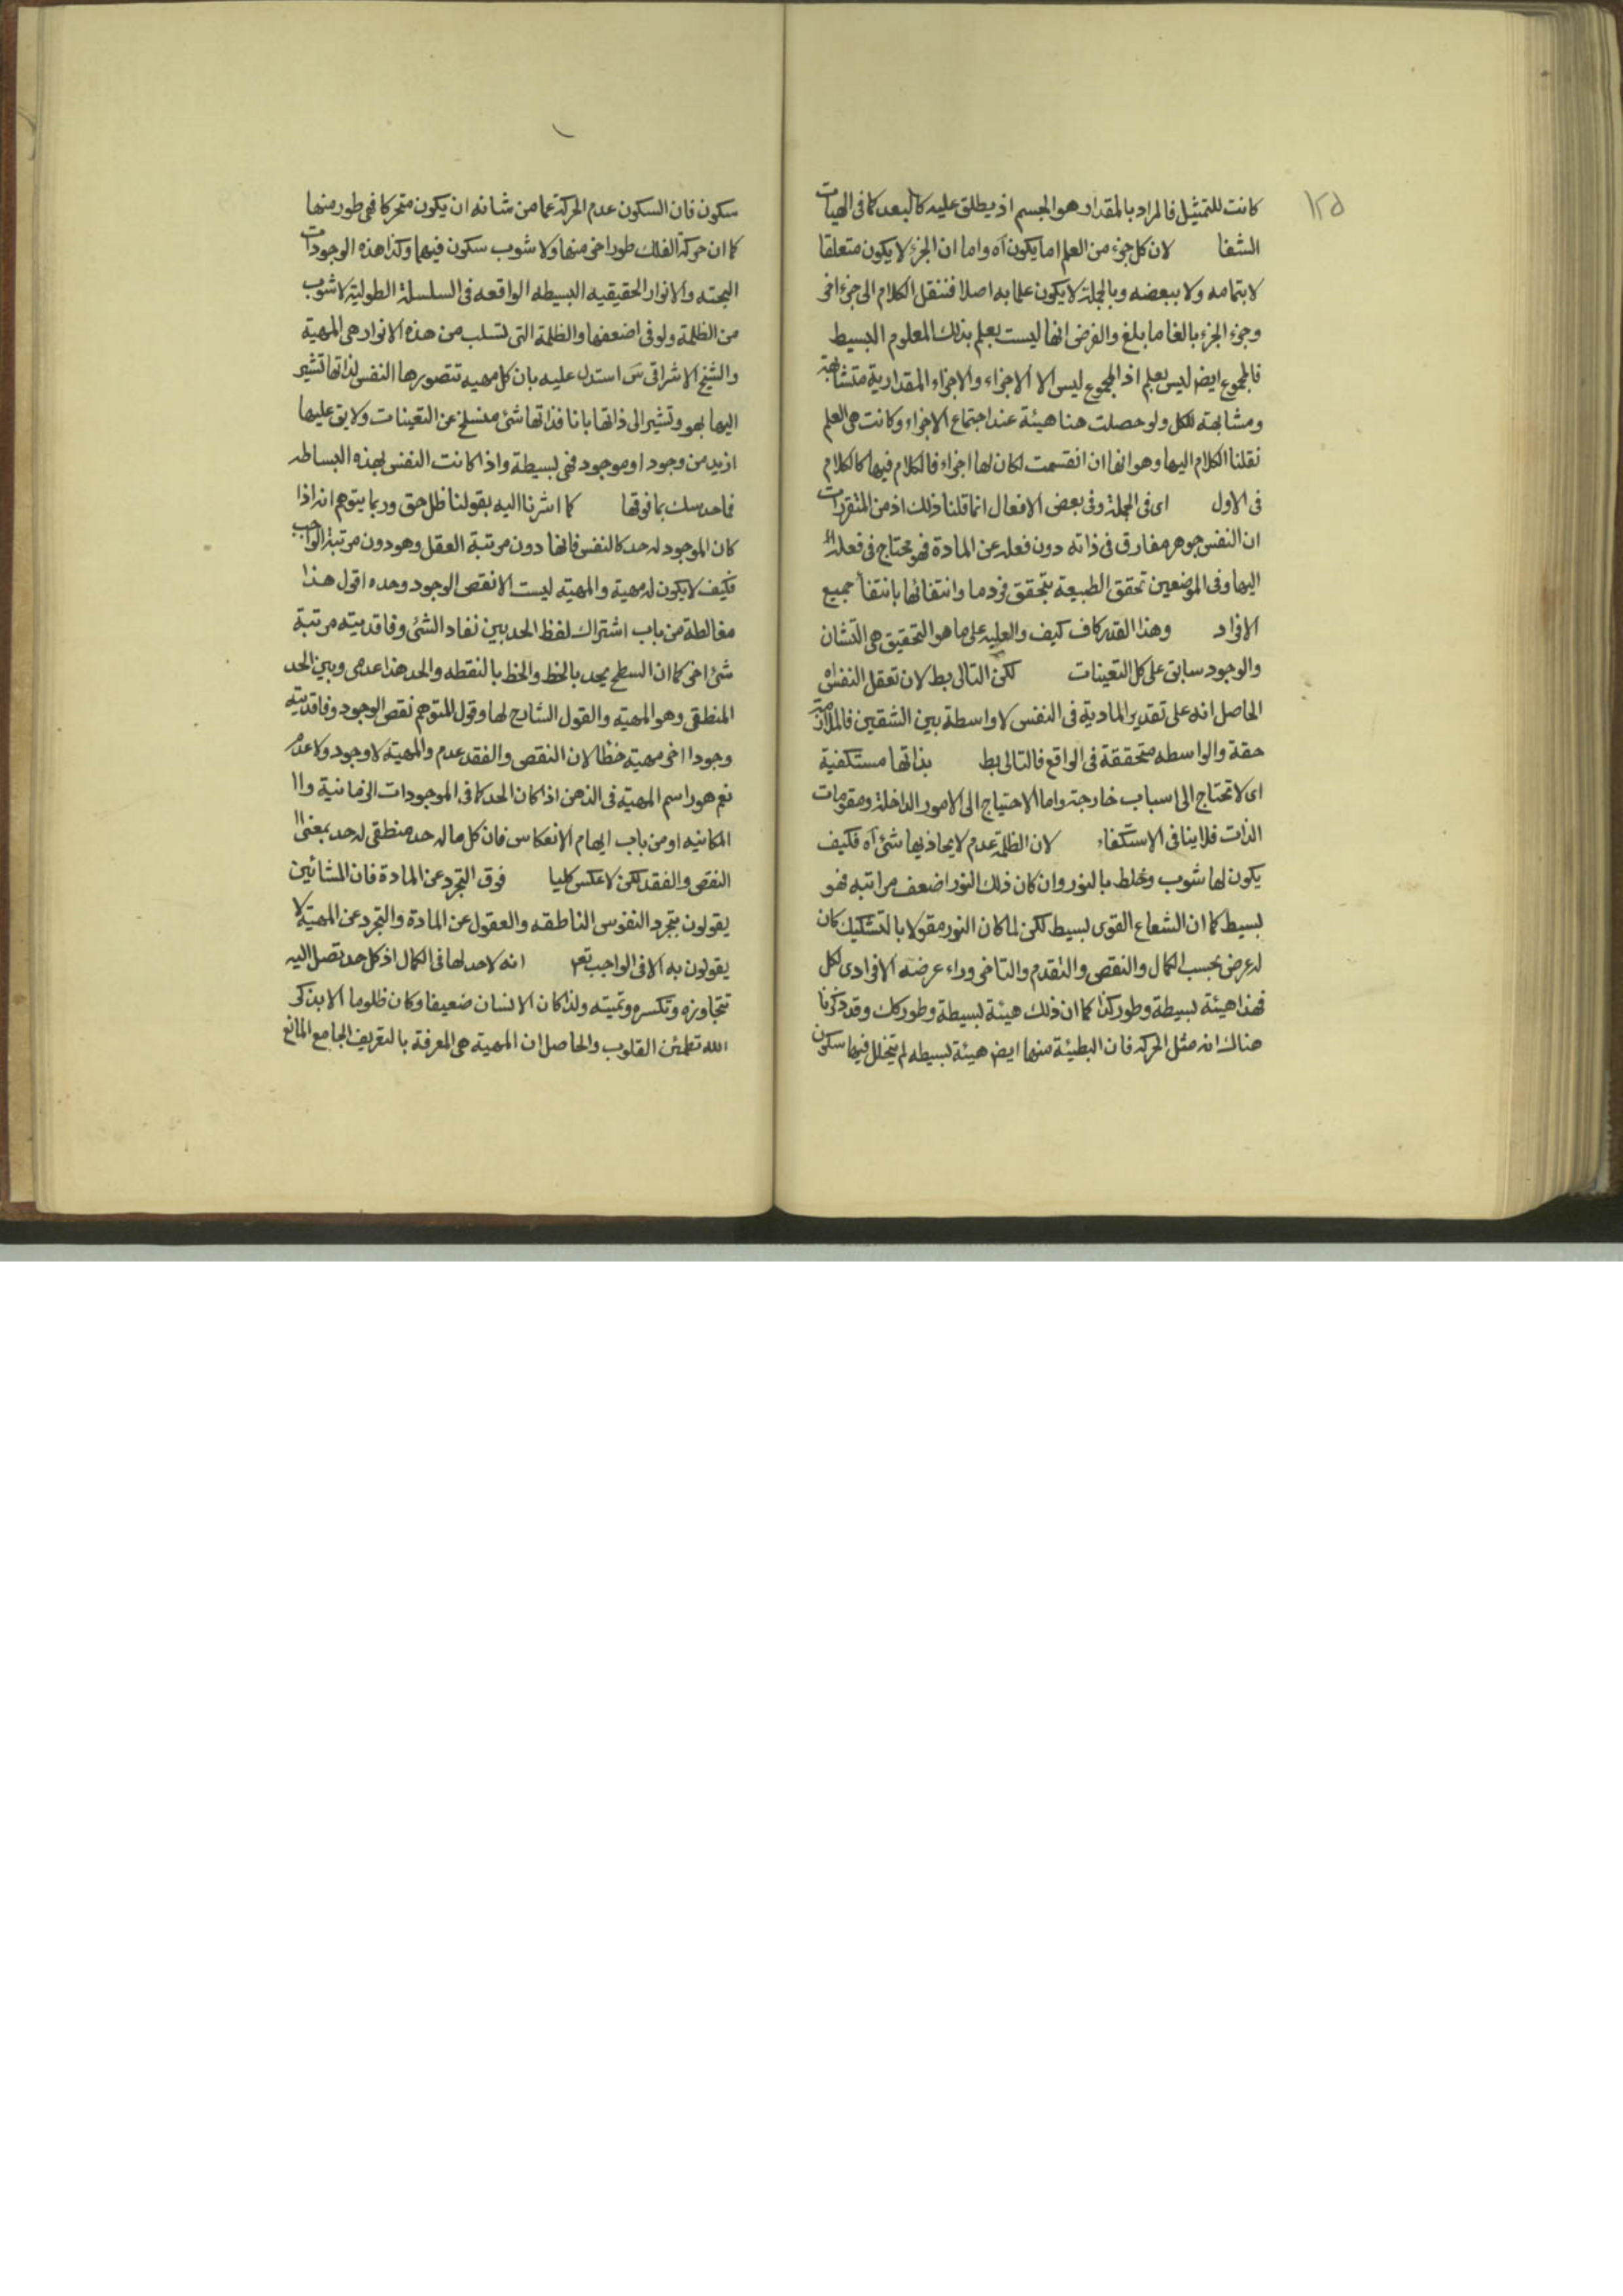 ١٢٥
كانت للتمثيل فالمراد بالمقدار هو الجسم اذ يطلق عليه كالبعد كما فى الهيات
الشفا لان كل جزء من العلم اما يكون آه واما ان الجزء لا يكون متعلقا
لا بتمامه ولا ببعضه وبالجملة لا يكون علما به اصلا فننقل الكلام الى جزء اخر
وجزء الجزء بالغا ما بلغ والفرض انها ليست بعلم بذلك المعلوم البسيط
فالمجموع ايضا ليس بعلم اذ المجموع ليس الا الاجزاء والاجزاء المقدارية متشابهة
ومشابهة للكل ولو حصلت هنا هيئة عند اجتماع الاجزاء وكانت هى العلم
نقلنا الكلام اليها وهو انها ان انقسمت لكان لها اجزاء فالكلام فيها كالكلام
فى الاول اى فى الجملة وفى بعض الافعال انما قلنا ذلك اذ من المتقررات
ان النفس جوهر مفارق فى ذاته دون فعله عن المادة فهو محتاج فى فعله
اليها وفى الموضعين تحقق الطبيعة بتحقق فرد ما وانتفائها بانتفاء جميع
الافراد وهذا القدر كاف كيف والعلية على ما هو التحقيق هى التشان
والوجود سابق على كل التعينات لكن التالى بط لان تعقل النفس آه
الحاصل انه على تقدير المادية فى النفس لا واسطة بين الشقين فالملازمة
حقة والواسطه متحققة فى الواقع فالتالى بط بذاتها مستكفية
اى لا تحتاج الى اسباب خارجة واما الاحتياج الى الامور الداخلة ومقومات
الذات فلا ينافى الاستكفاء لان الظلمة عدم لا يحاذيها شئ آه فكيف
يكون لها شوب وخلط بالنور وان كان ذلك النور اضعف مراتبه فهو
بسيط كما ان الشعاع القوى بسيط لكن لما كان النور مقولا بالتشكيك كان
له عرض بحسب الكمال والنقص والتقدم والتاخر وراء عرضه الافرادى لكل
فهذا هيئة بسيطة وطور كذا كما ان ذلك هيئة بسيطة وطور كك وقد ذكرنا
هناك انه مثل الحركة فان البطيئة منها ايضا هيئة بسيطه لم يتخلل فيها سكون
سكون فان السكون عدم الحركة عما من شانه ان يكون متحركا فهى طور منها
كما ان حركة الفلك طور اخر منها ولا شوب سكون فيهما وكذا هذه الوجودات
البحته والانوار الحقيقيه البسيطه الواقعه فى السلسلة الطولية لا شوب
من الظلمة ولو فى اضعفها والظلمة التى تسلب من هذه الانوار هى المهية
والشيخ الاشراقى س استدل عليه بان كل مهيه تتصورها النفس لذاتها تشير
اليها بهو وتشير الى ذاتها بانا فذاتها شئ منسلخ عن التعينات ولا يق عليها
ازيد من وجود او موجود فهى بسيطة واذا كانت النفس بهذه البساطه
فما حدسك بما فوقها كما اشرنا اليه بقولنا ظل حق وربما يتوهم انه اذا
كان الموجود له حد كالنفس فانها دون مرتبة العقل وهو دون مرتبة الواجب
فكيف لا يكون له مهية والمهية ليست الا نقص الوجود وحده اقول هذا
مغالطة من باب اشتراك لفظ الحد بين نفاد الشئ وفاقديته مرتبة
شئ اخر كما ان السطح يحد بالخط والخط بالنقطه والحد هذا عدمى وبين الحد
المنطقى وهو المهيه والقول الشارح لها وقول المتوهم نقص الوجود وفاقديته
وجودا اخر مهية خطا لان النقص والفقد عدم والمهية لا وجود ولا عدم
نعم هو راسم المهية فى الذهن اذا كان الحد كما فى الموجودات الزمانية وا
المكانيه او من باب ايهام الانعكاس فان كل ما له حد منطقى له حد بمعنى
النقص والفقد لكن لا عكس كليا فوق التجرد عن المادة فان المشائين
يقولون بتجرد النفوس الناطقه والعقول عن المادة والتجرد عن المهية لا
يقولون به الا فى الواجب تعم انه لا حد لها فى الكمال اذ كل حد تصل اليه
تتجاوزه وتكسره وتميته ولذا كان الانسان ضعيفا وكان ظلوما الا بذكر
الله تطمئن القلوب والحاصل ان المهية هى المعرفة بالتعريف الجامع المانع